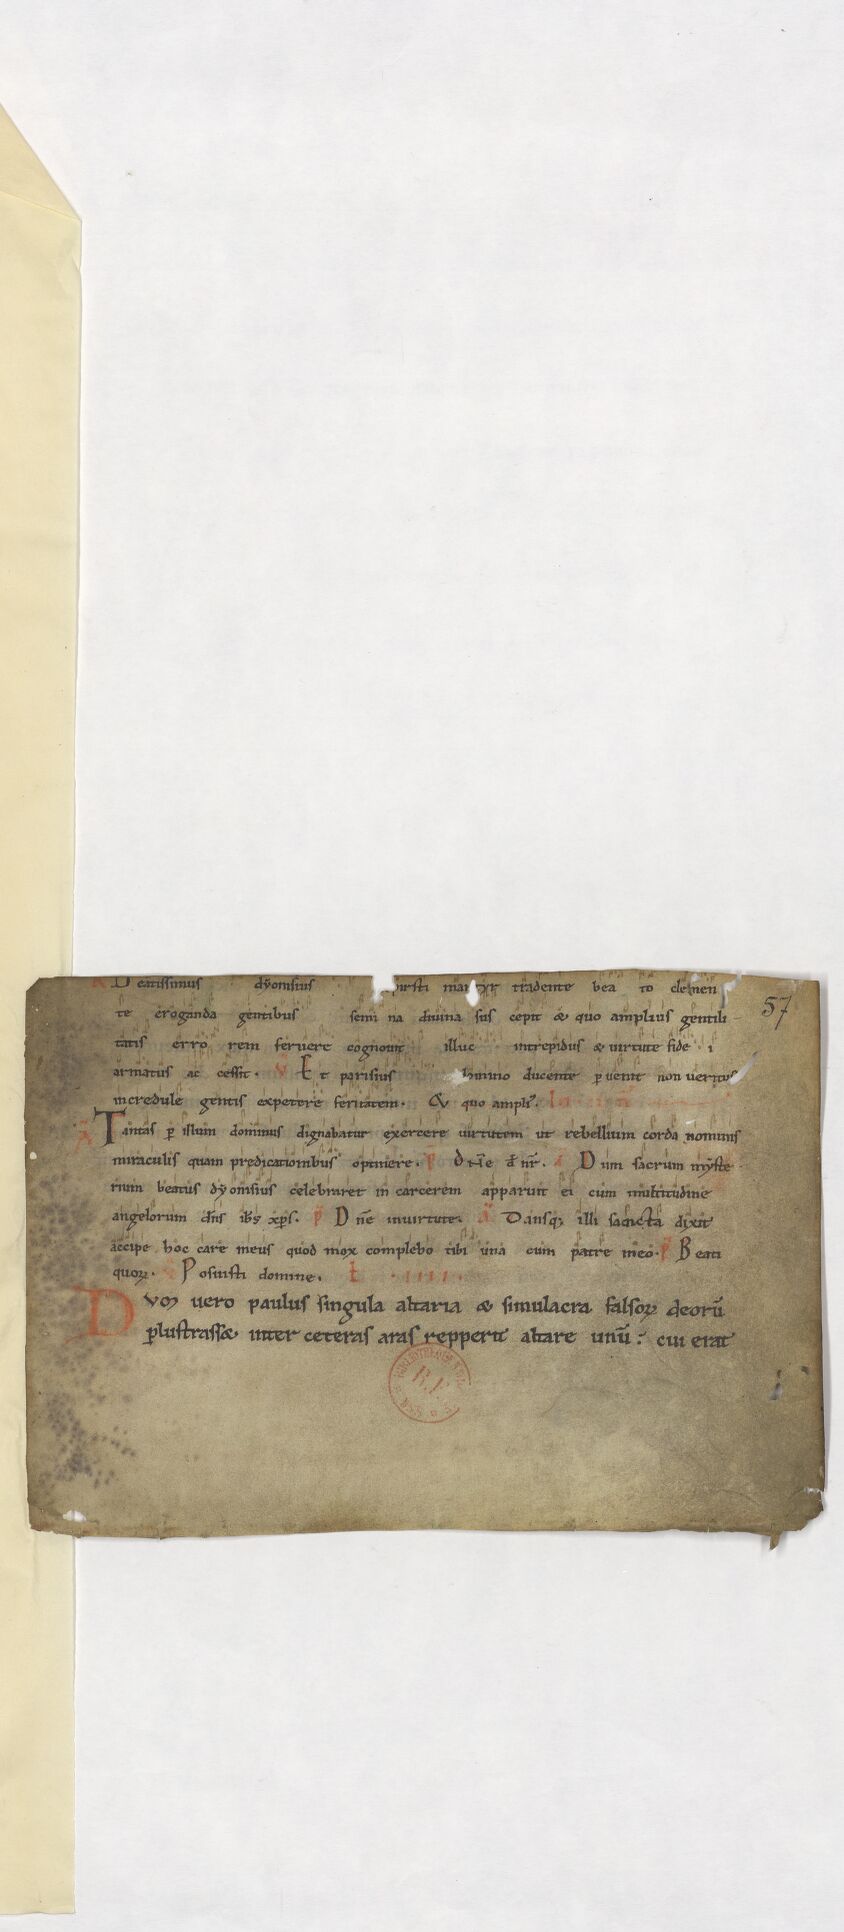 R Beatissimus dyonisius martyr tradente bea to clemen
57
te eroganda gentibus semi na divina sus cepit & quo amplius gentili
tatis erro rem fervere cognovit illuc intrepidus & virtute fide i
armatus ac cessit. V Et parisius domino ducente pvenit non veritus
incredule gentis expetere feritatem. Et quo ampli9.
A Tantas p illum dominus dignabatur exercere virtutem ut rebellium corda nominis
miraculis quam predicationibus optinere. p Dne d nr. A Dum sacrum myste
rium beatus dyonisius celebraret in carcerem apparuit ei cum multitudine
angelorum dns ihs xps. p Dne in virtute. A Dansq; illi sancta dixit
accipe hoc care meus quod mox complebo tibi una cum patre meo. p Beati
quorum. V Posuisti domine. L .IIII.
Dum vero paulus singula altaria & simulacra falsorum deorū
plustrass& inter ceteras aras repperit altare unū: cui erat
R.F.